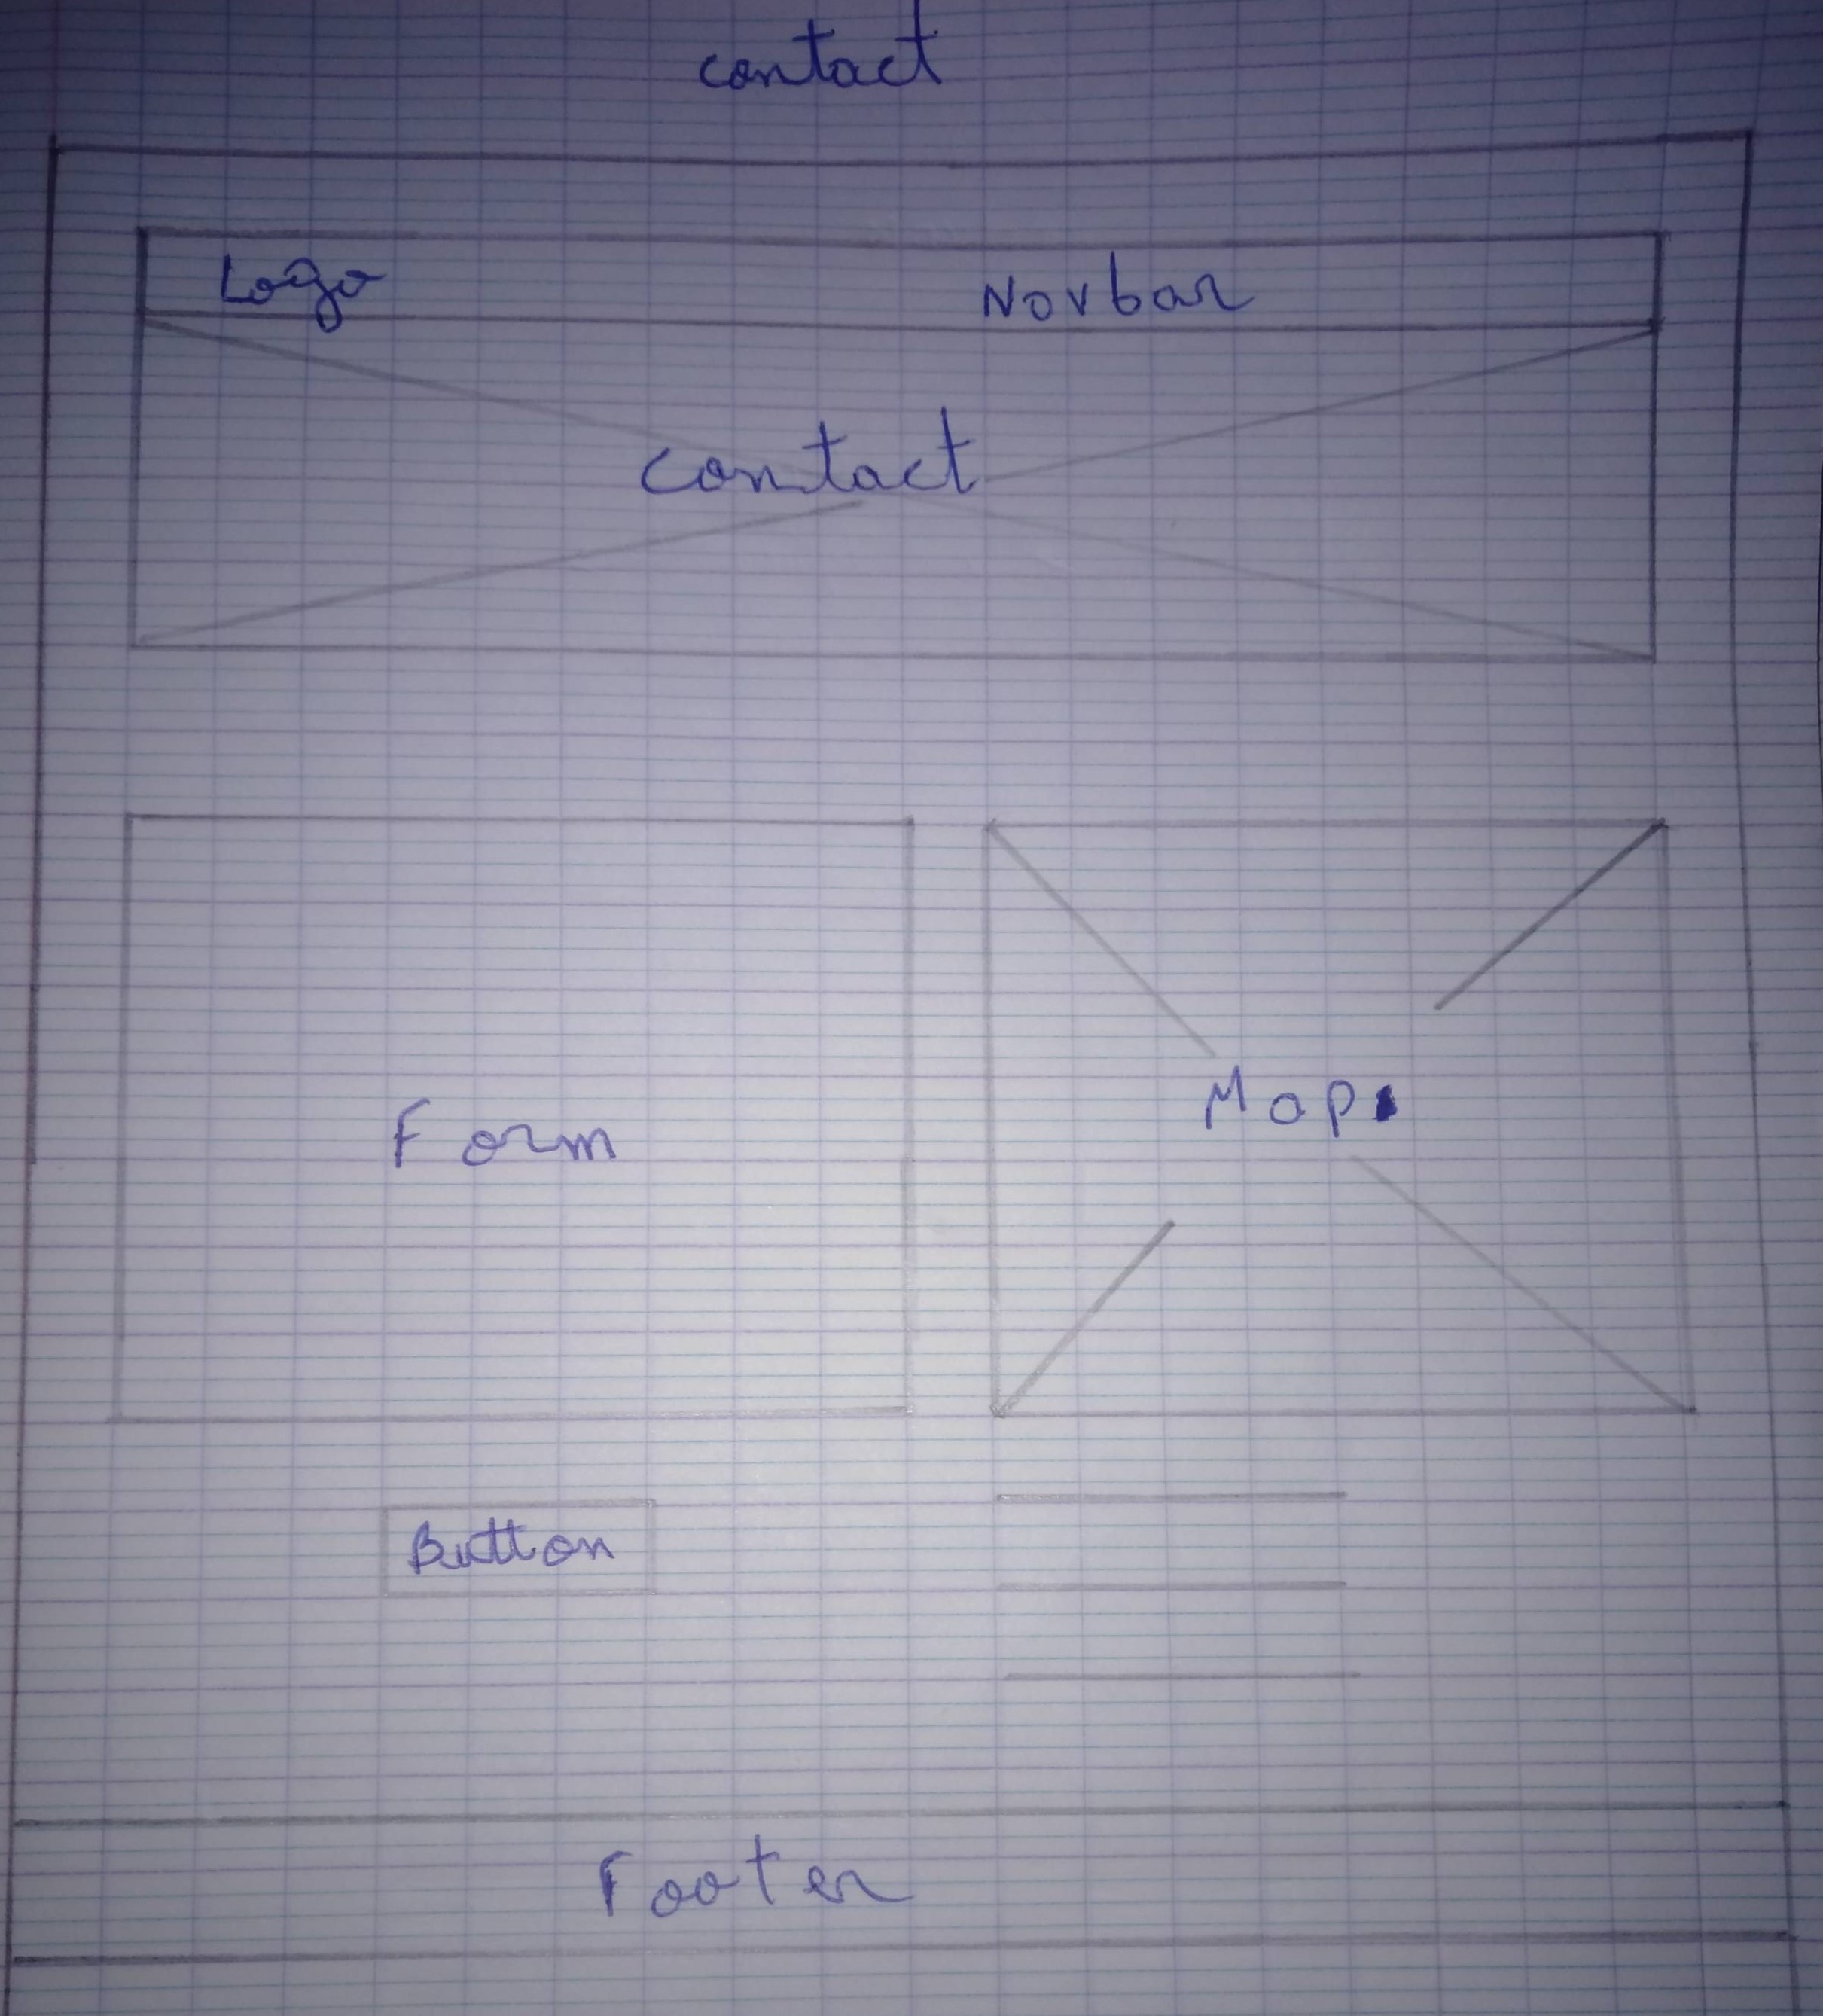 contact
Logo Navbar
Contact
Form
Map
Button
Footer